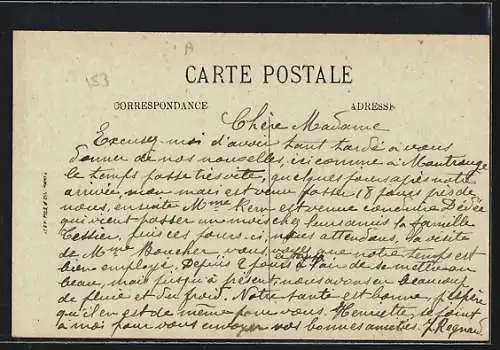 153
A
CARTE POSTALE
CORRESPONDANCE
ADRESSE
Chère Madame
Excusez-moi d'avoir tant tardé à vous
donner de nos nouvelles, ici comme à Montrouge
le temps passe très vite, quelques jours après notre
arrivée, mon mari est venu passer 18 jours près de
nous, ensuite Mme Kern est venue conduire Dédée
qui vient passer un mois chez leurs amis la famille
Tessier, puis ces jours-ci nous attendons la visite
de Mme Boucher vous voyez que notre temps est
bien employé. Depuis 2 jours à l'air de se mettre au
beau, mais jusqu'à présent nous avons eu beaucoup
de pluie et du froid. Notre santé est bonne, j'espère
qu'il en est de même pour vous. Henriette se joint
à moi pour vous envoyer nos bonnes amitiés. J. Regnard